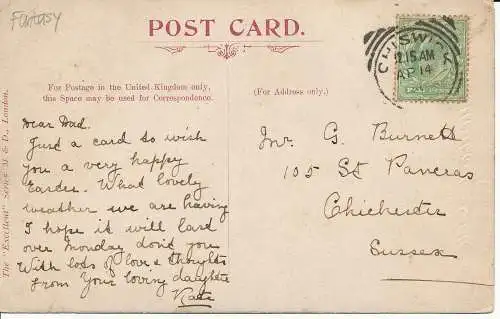 Fantasy
POST CARD.
CHISWICK
12.15 AM
AP 14
For Postage in the United Kingdom only,
this Space may be used for Correspondence.
(For Address only.)
Dear Dad.
Just a card to wish
you a very happy
Easter. What lovely
weather we are having
I hope it will last
over Monday don't you
With lots of love & thoughts
from Your loving daughter
Kate
Mr. G. Burnett
105 St Pancras
Chichester
Sussex
The "Excellent" Series M & D., London.